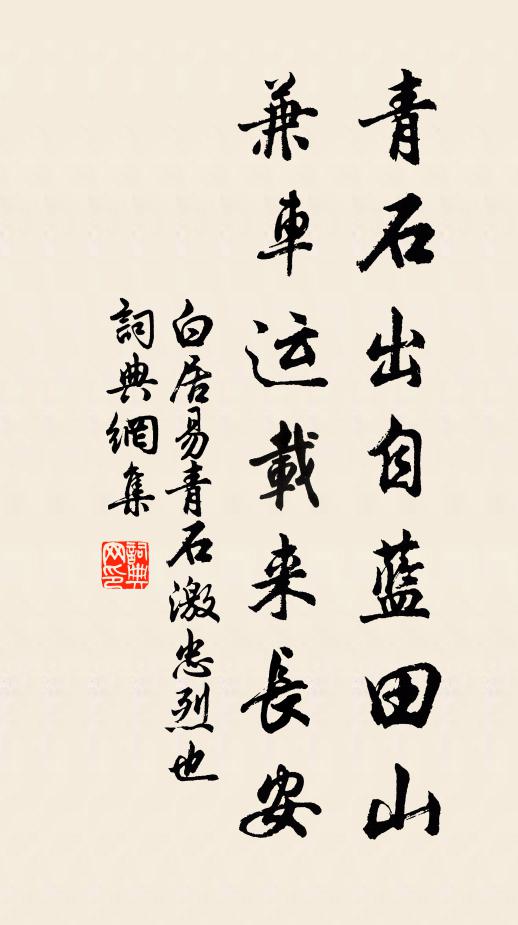 青石出自藍田山
兼車运載来長安
白居易青石激忠烈也
詞典網集
詞典网印